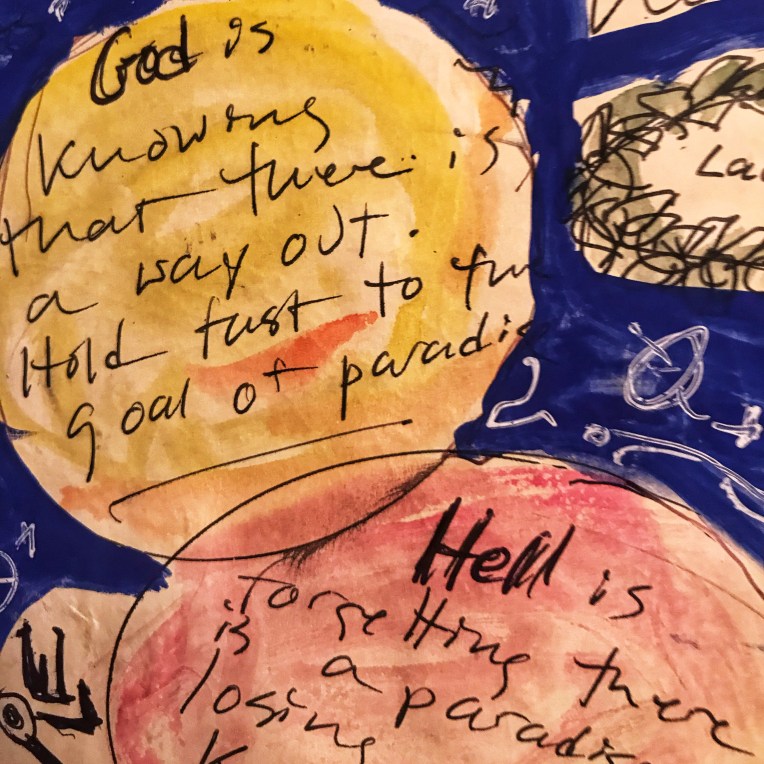 God is
Knowing
that there is
a way out.
Hold fast to
goal of
2
La
Hell is
forgetting there
is a
losing
LE